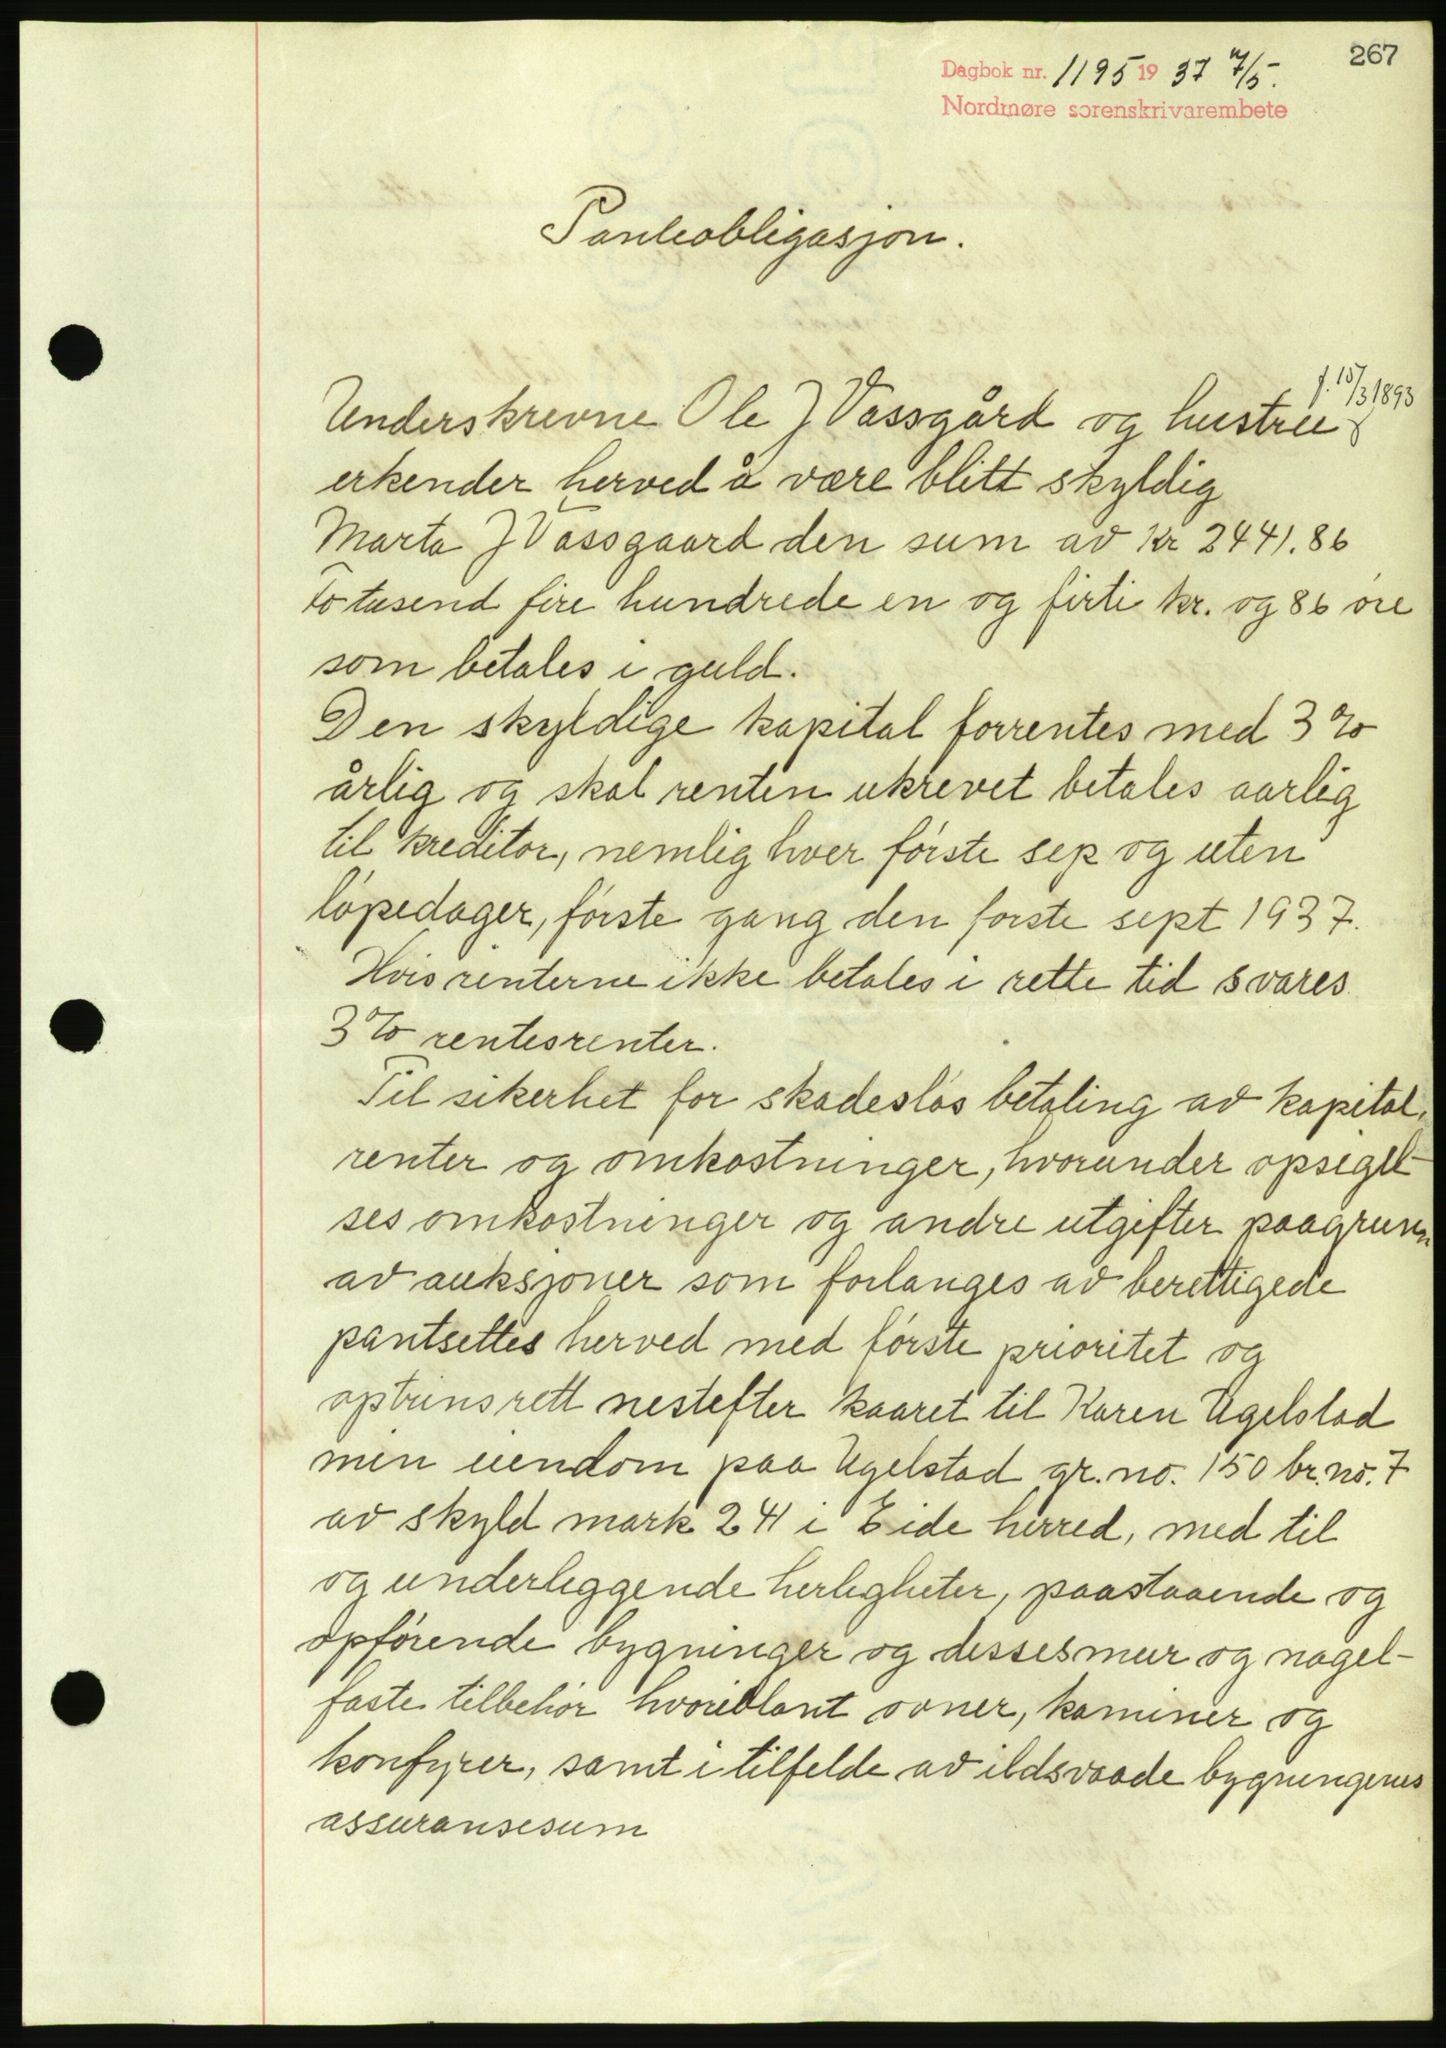 267
Dagbok nr. 1195 1937 7/5.
Nordmøre sorenskrivarembete
Panteobligasjon.
f. 15/3 1893
Underskrevne Ole J Vassgård og hustru
erkender herved å være blitt skyldig
Marta J Vassgaard den sum av kr 2441.86
to tusend fire hundrede en og firti kr. og 86 øre
som betales i guld.
Den skyldige kapital forrentes med 3 %
årlig og skal renten ukrevet betales aarlig
til kreditor, nemlig hver første sep og uten
løpedager, første gang den første sept 1937.
Hvis renterne ikke betales i rette tid svares
3 % rentesrenter.
Til sikerhet for skadesløs betaling av kapital,
renter og omkostninger, hvorunder opsigel-
ses omkostninger og andre utgifter paagrunn
av auksjoner som forlanges av berettigede
pantsettes herved med første prioritet og
optrinsrett nestefter kaaret til Karen Ugelstad
min eiendom paa Ugelstad gr. no. 150 br. no. 7
av skyld mark 2 41 i Eide herred, med til
og underliggende herligheter, paastaaende og
opførende bygninger og dessesmur og nagel-
faste tilbehør hvoriblant ovner, kaminer og
konfyrer, samt i tilfelde av ildsvaade bygningenes
assuransesum